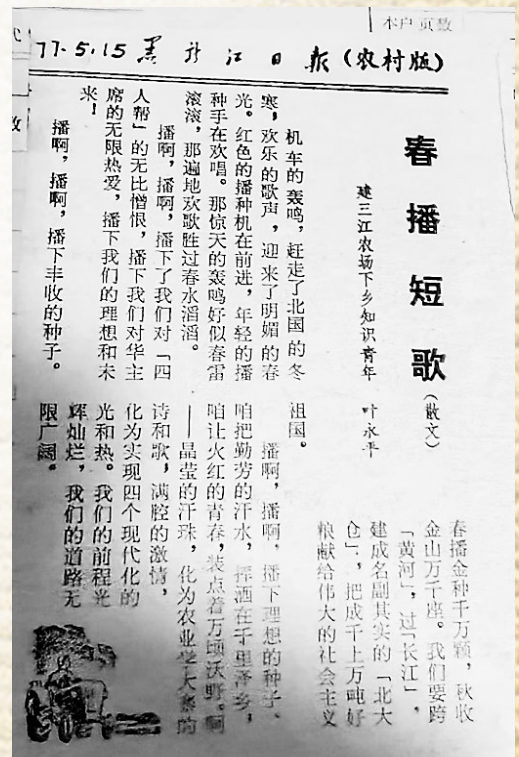 本户页数
77.5.15 黑龙江日报（农村版）
春播短歌（散文）
建三江农场下乡知识青年 叶永平
机车的轰鸣，赶走了北国的冬
寒，欢乐的歌声，迎来了明媚的春
光。红色的播种机在前进，年轻的播
种手在欢唱。那惊天的轰鸣好似春雷
滚滚，那遍地欢歌胜过春水滔滔。
播啊，播啊，播下了我们对「四
人帮」的无比憎恨，播下我们对华主
席的无限热爱，播下我们的理想和未
来！
播啊，播啊，播下丰收的种子。
春播金种千万颗，秋收
金山万千座。我们要跨
「黄河」，过「长江」，
建成名副其实的「北大
仓」，把成千上万吨好
粮献给伟大的社会主义
祖国。
播啊，播啊，播下理想的种子。
咱把勤劳的汗水，挥洒在千里泽乡，
咱让火红的青春，装点着万顷沃野。啊
——晶莹的汗珠，化为农业学大寨的
诗和歌，满腔的激情，
化为实现四个现代化的
光和热。我们的前程光
辉灿烂，我们的道路无
限广阔。